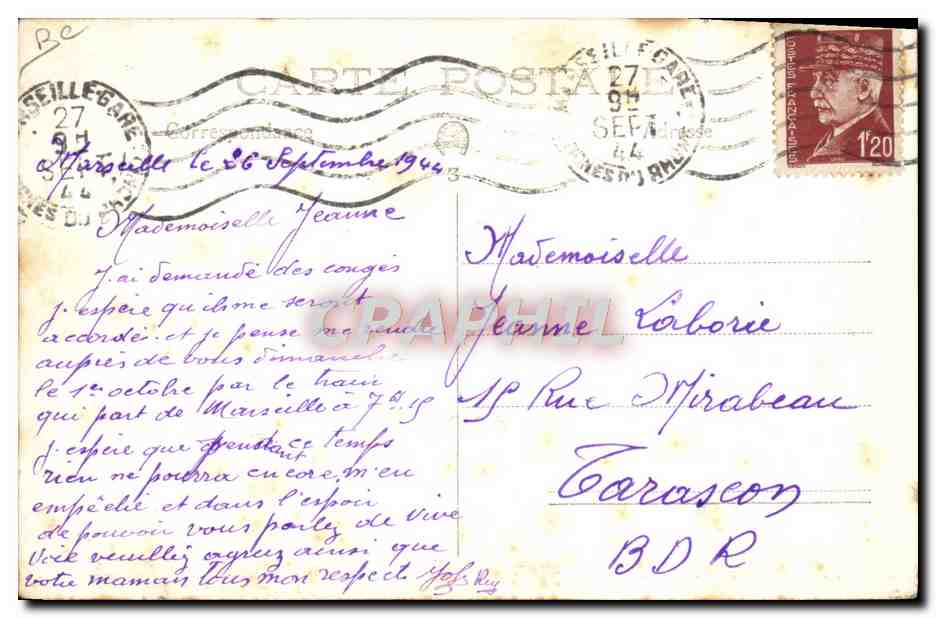 BC
CARTE POSTALE
Correspondance
Adresse
MARSEILLE-GARE
27
9H
SEPT
44
BCHES DU RHONE
MARSEILLE-GARE
27
9H
SEPT
44
BCHES DU RHONE
POSTES FRANÇAISES
1F20
3
Marseille le 26 Septembre 1944
Mademoiselle Jeanne
J'ai demandé des congés
j'espère qu'ils me seront
accordés et je pense me rendre
auprès de vous dimanche
le 1er octobre par le train
qui part de Marseille à 7H.15
j'espère que pendant ce temps
rien ne pourra encore m'en
empêché et dans l'espoir
de pouvoir vous parlez de vive
voie veuillez agréez ainsi que
votre maman tous mon respects
Mademoiselle
Jeanne Laborie
15 Rue Mirabeau
Tarascon
BDR
CPAPHIL